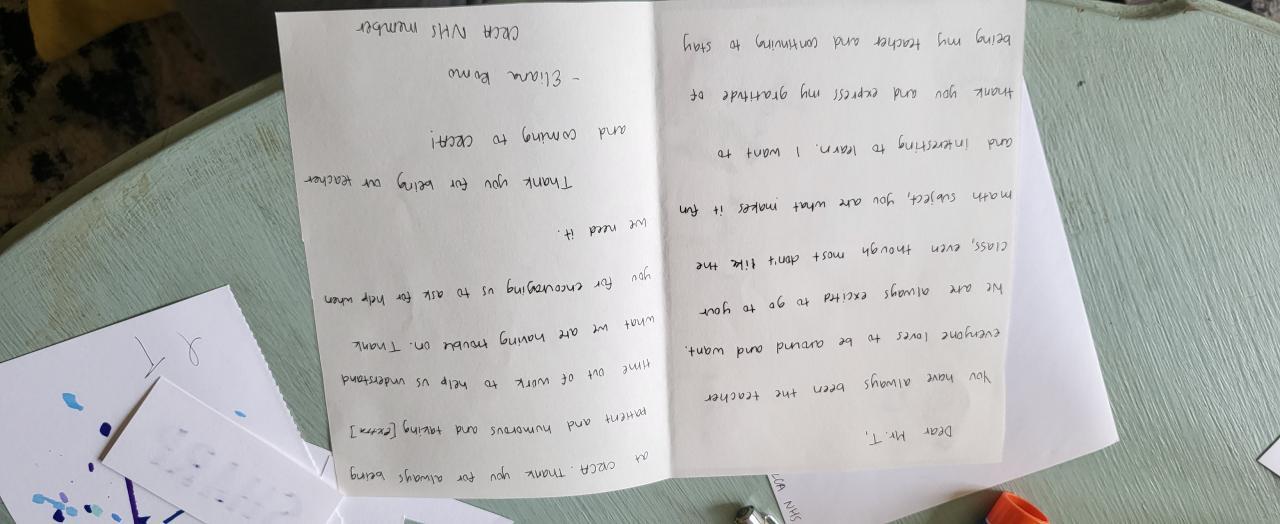 Dear Mr. T,
You have always been the teacher
everyone loves to be around and want.
We are always excited to go to your
class, even though most don't like the
math subject, you are what makes it fun
and interesting to learn. I want to
thank you and express my gratitude of
being my teacher and continuing to stay
at CRCA. Thank you for always being
patient and humorous and taking [extra]
time out of work to help us understand
what we are having trouble on. Thank
you for encouraging us to ask for help when
we need it.
Thank you for being our teacher
and coming to CRCA!
- Eliana Romo
CRCA NHS member
NHS